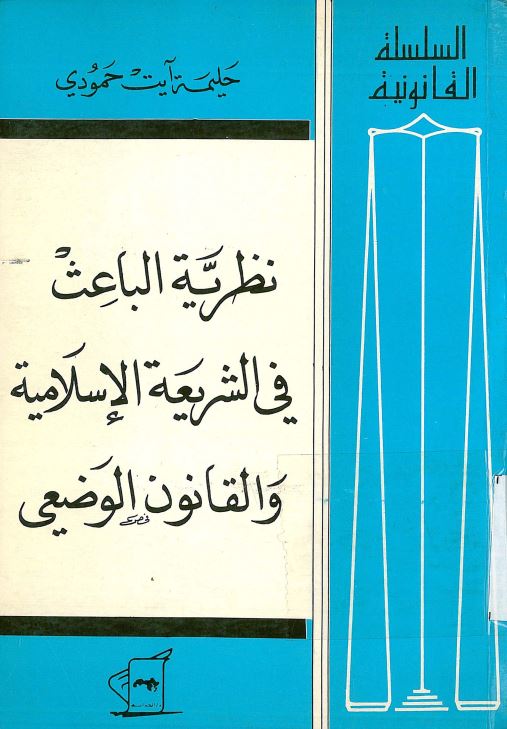 السلسلة
القانونية
حليمة آيت حمودي
نظرية الباعث
في الشريعة الإسلامية
والقانون الوضعي